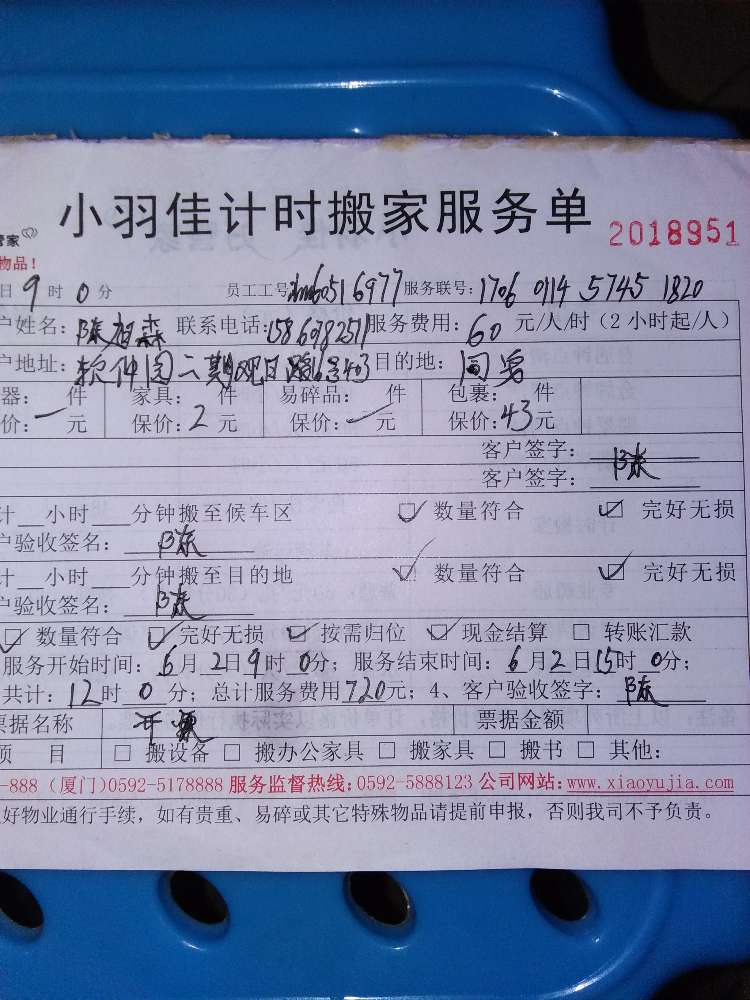 小羽佳计时搬家服务单
管家
2018951
物品！
日9时0分 员工工号 6516977 服务联号：1706 0114 5745 1820
户姓名：陈 森 联系电话： 服务费用：60元/人/时（2小时起/人）
户地址：软件园二期观日路 403 目的地：同安
器： 件 家具： 件 易碎品： 件 包裹： 件
价：一 元 保价：2元 保价： 元 保价：43元
客户签字：陈
客户签字：
计__小时___分钟搬至候车区 ☑ 数量符合 ☑ 完好无损
户验收签名：陈
计__小时___分钟搬至目的地 ☑ 数量符合 ☑ 完好无损
户验收签名：陈
☑ 数量符合 ☑ 完好无损 ☑ 按需归位 ☑ 现金结算 □ 转账汇款
服务开始时间：6月2日9时0分；服务结束时间：6月2日15时0分；
共计：12时0分；总计服务费用720元；4、客户验收签字：陈
票据名称 票据金额
项 目 □ 搬设备 □ 搬办公家具 □ 搬家具 □ 搬书 □ 其他：
-888（厦门）0592-5178888 服务监督热线：0592-5888123 公司网站：www.xiaoyujia.com
好物业通行手续，如有贵重、易碎或其它特殊物品请提前申报，否则我司不予负责。